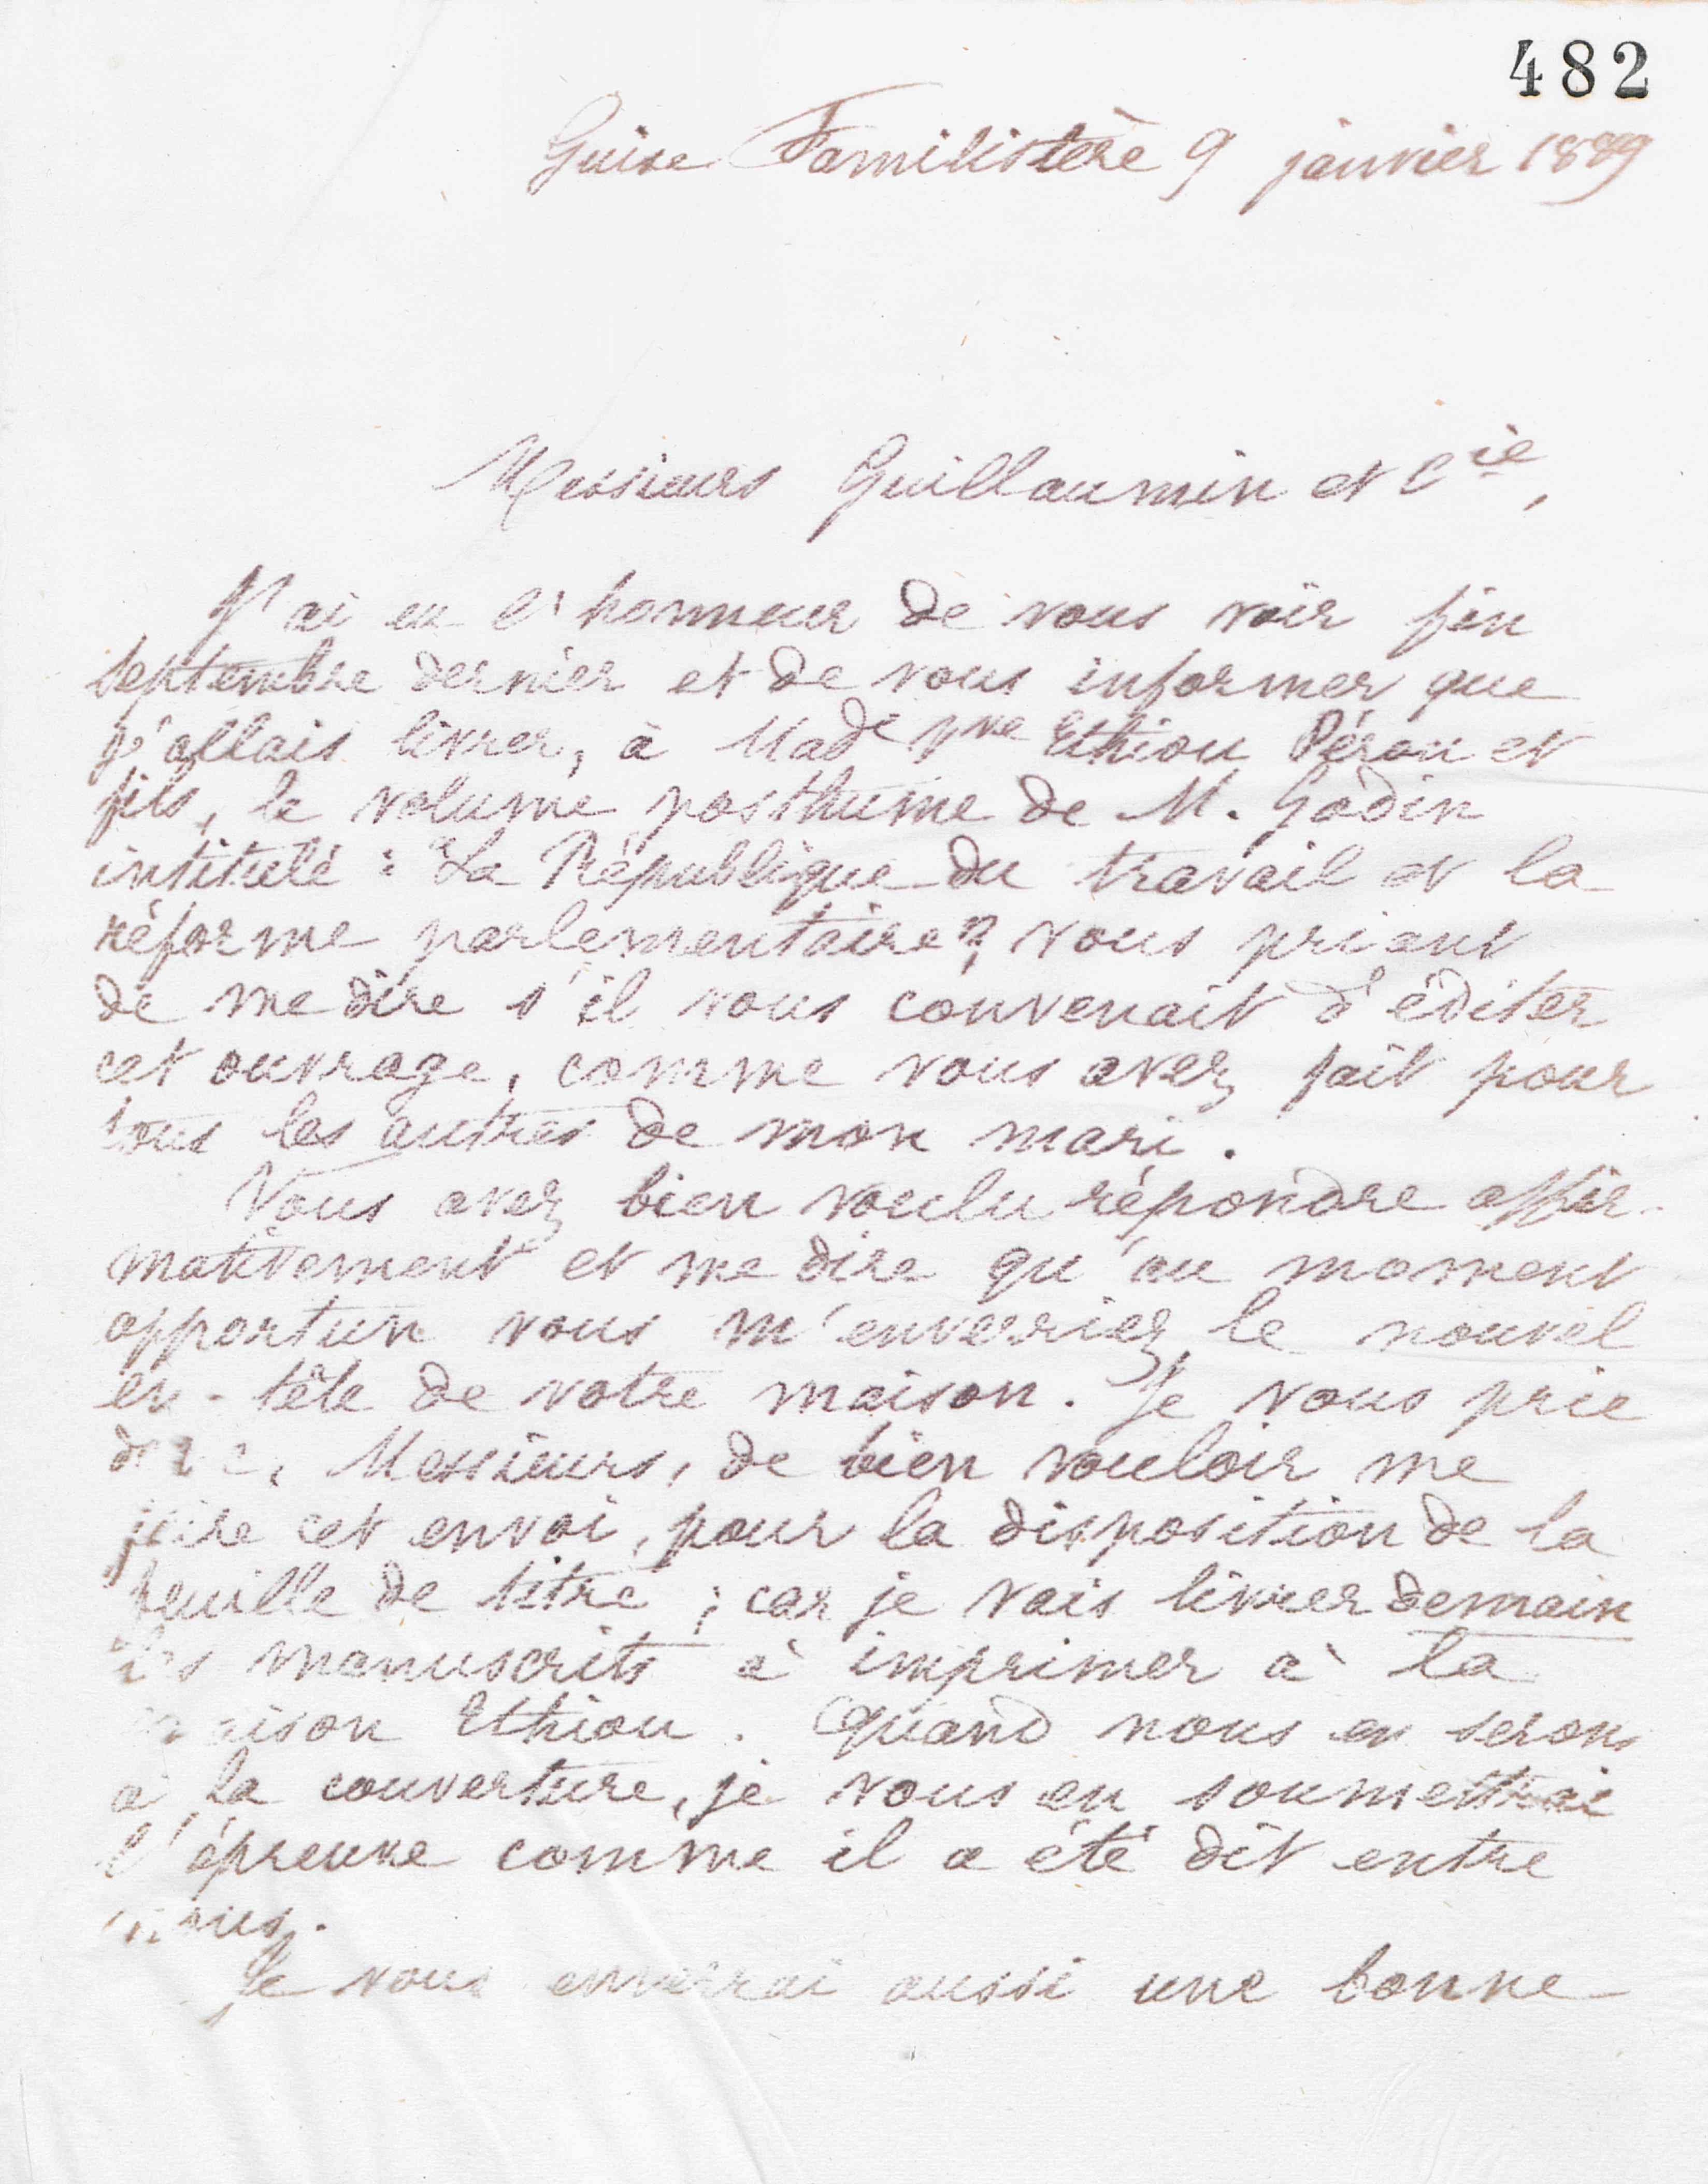 482
Guise Familistère 9 janvier 1889
Messieurs Guillaumin et Cie,
J'ai eu l'honneur de vous voir fin
septembre dernier et de vous informer que
j'allais livrer, à Made Vve Ethiou Péron et
fils, le volume posthume de M. Godin
intitulé : "La République du travail et la
réforme parlementaire", vous priant
de me dire s'il vous convenait d'éditer
cet ouvrage, comme vous avez fait pour
tous les autres de mon mari.
Vous avez bien voulu répondre affir-
mativement et me dire qu'au moment
opportun vous m'enverriez le nouvel
en-tête de votre maison. Je vous prie
donc, Messieurs, de bien vouloir me
faire cet envoi, pour la disposition de la
feuille de titre ; car je vais livrer demain
les manuscrits à imprimer à la
maison Ethiou. Quand nous en serons
à la couverture, je vous en soumettrai
l'épreuve comme il a été dit entre
nous.
Je vous enverrai aussi une bonne